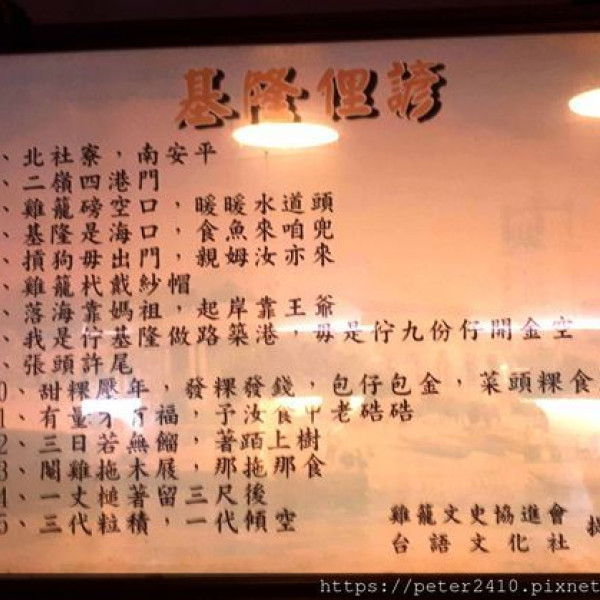 基隆俚諺
、北社寮，南安平
、二嶺四港門
、雞籠磅空口，暖暖水道頭
、基隆是海口，食魚來咱兜
、摃狗毋出門，親姆汝亦來
、雞籠杙戴紗帽
、落海靠媽祖，起岸靠王爺
、我是佇基隆做路築港，毋是佇九份仔開金空
、張頭許尾
0、甜粿壓年，發粿發錢，包仔包金，菜頭粿食
1、有量才有福，予汝食甲老硞硞
2、三日若無餾，著蹈上樹
3、閹雞拖木屐，那拖那食
4、一丈槌著留三尺後
5、三代粒積，一代傾空
雞籠文史協進會
台語文化社
https://peter2410.pixnet